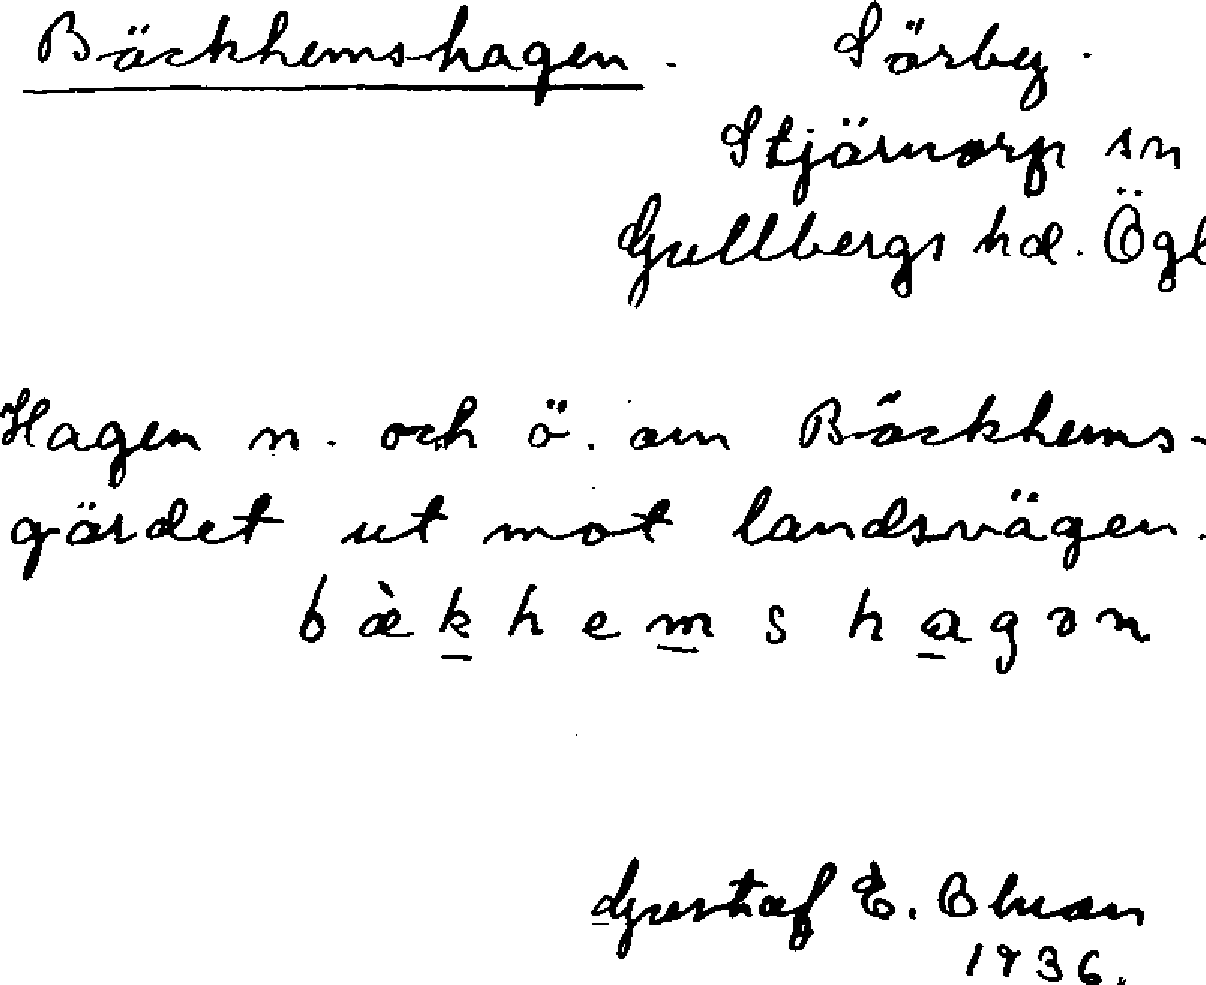 Bäckhemshagen. Sörby.
Stjärnorp sn
Gullbergs hd. Ögl
Hagen n. och ö. om Bäckhems-
gärdet ut mot landsvägen.
bæ̀khemshagən
Gustaf E.
1936.